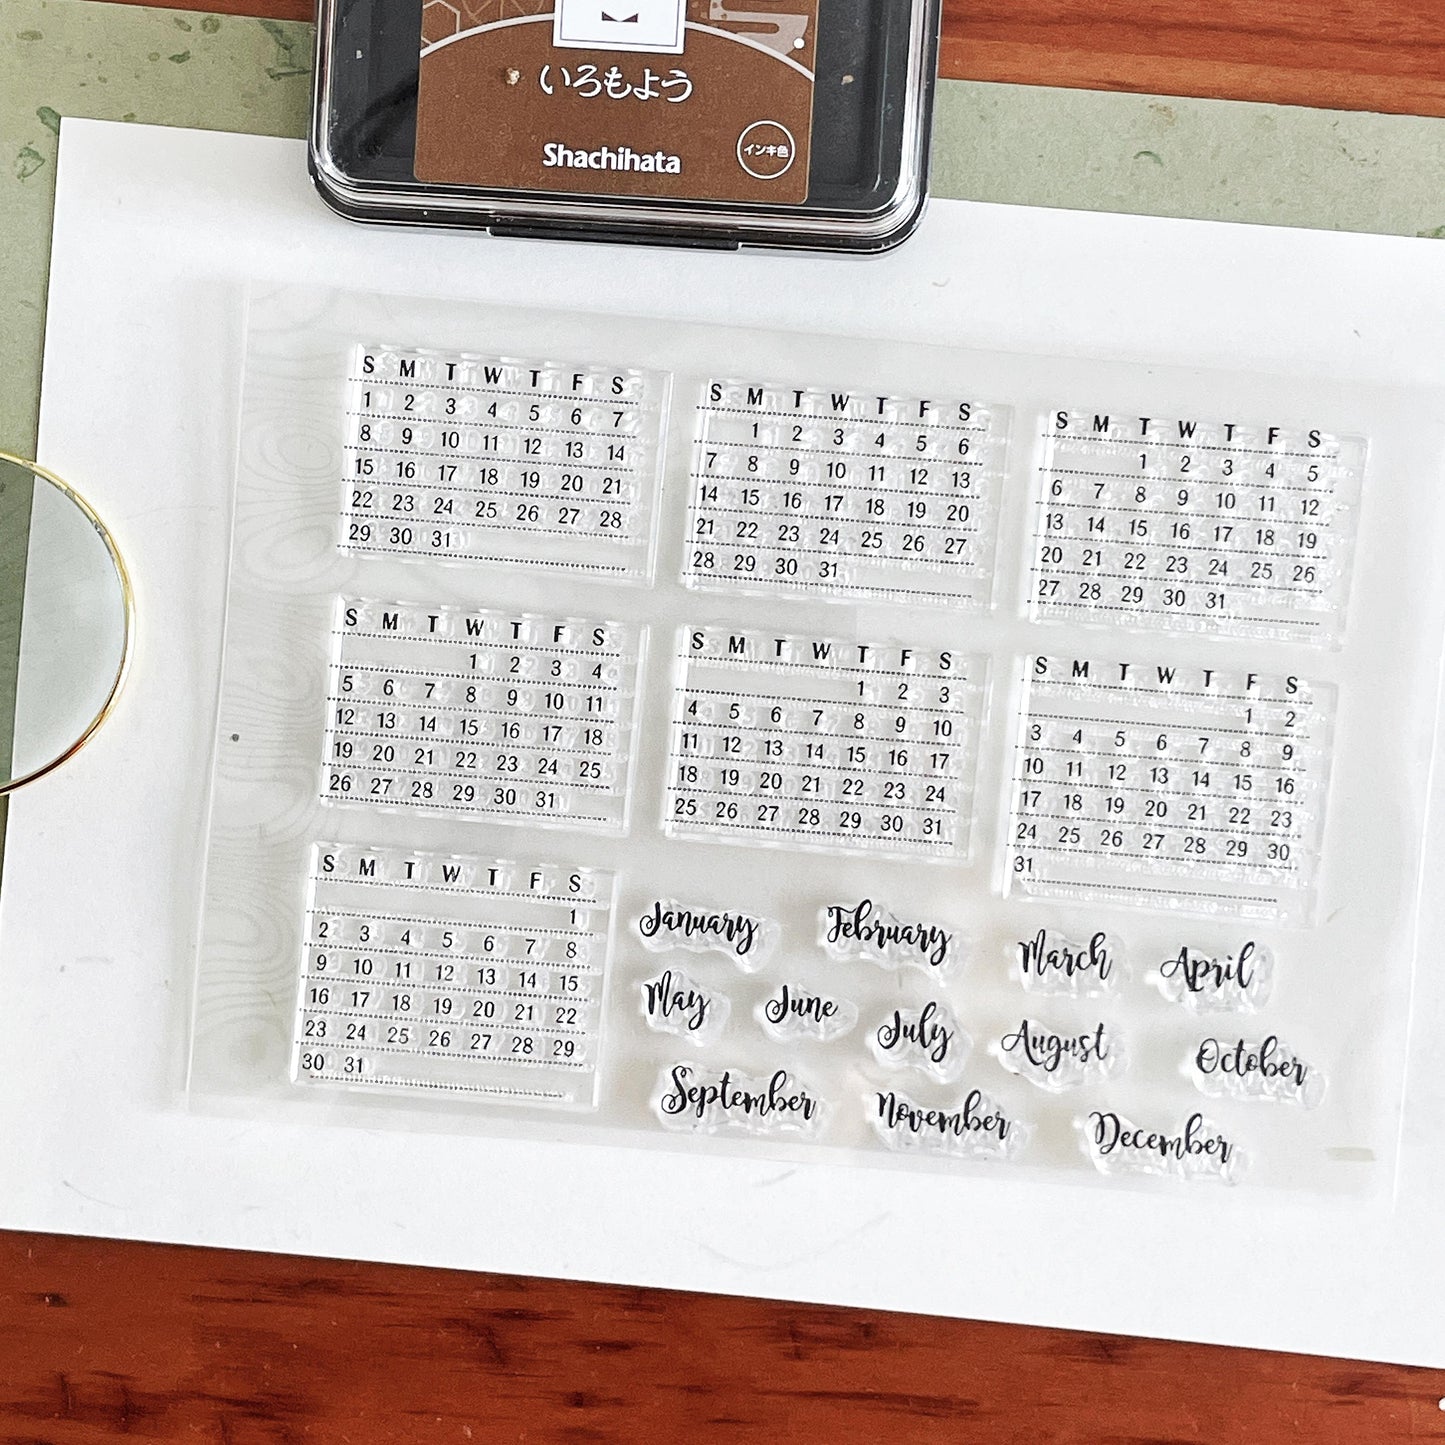 いろもよう
Shachihata
インキ色
S M T W T F S
1 2 3 4 5 6 7
8 9 10 11 12 13 14
15 16 17 18 19 20 21
22 23 24 25 26 27 28
29 30 31
S M T W T F S
1 2 3 4 5 6
7 8 9 10 11 12 13
14 15 16 17 18 19 20
21 22 23 24 25 26 27
28 29 30 31
S M T W T F S
1 2 3 4 5
6 7 8 9 10 11 12
13 14 15 16 17 18 19
20 21 22 23 24 25 26
27 28 29 30 31
S M T W T F S
1 2 3 4
5 6 7 8 9 10 11
12 13 14 15 16 17 18
19 20 21 22 23 24 25
26 27 28 29 30 31
S M T W T F S
1 2 3
4 5 6 7 8 9 10
11 12 13 14 15 16 17
18 19 20 21 22 23 24
25 26 27 28 29 30 31
S M T W T F S
1 2
3 4 5 6 7 8 9
10 11 12 13 14 15 16
17 18 19 20 21 22 23
24 25 26 27 28 29 30
31
S M T W T F S
1
2 3 4 5 6 7 8
9 10 11 12 13 14 15
16 17 18 19 20 21 22
23 24 25 26 27 28 29
30 31
January February March April
May June July August October
September November December